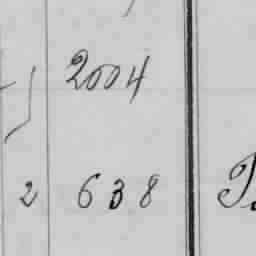 2004
2 638